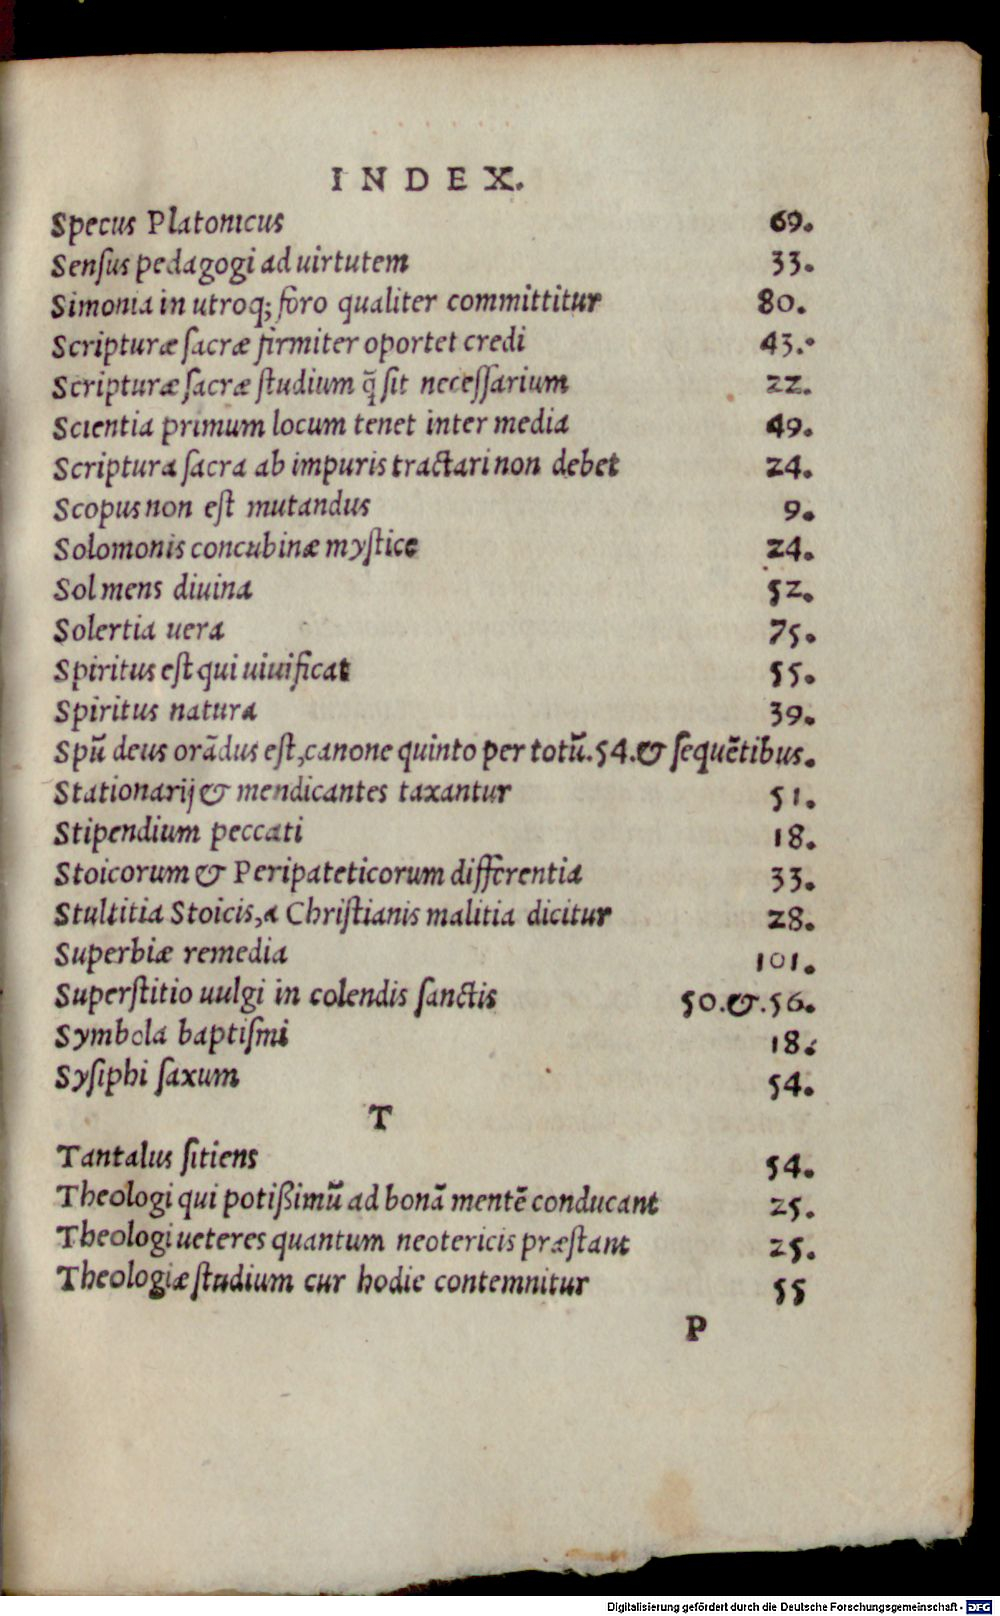 INDEX.
Specus Platonicus 69.
Senſus pedagogi ad uirtutem 33.
Simonia in utroq; foro qualiter committitur 80.
Scripturæ ſacræ firmiter oportet credi 43.
Scripturæ ſacræ ſtudium q̃ ſit neceſſarium 22.
Scientia primum locum tenet inter media 49.
Scriptura ſacra ab impuris tractari non debet 24.
Scopus non eſt mutandus 9.
Solomonis concubinæ myſtice 24.
Sol mens diuina 52.
Solertia uera 75.
Spiritus eſt qui uiuificat 55.
Spiritus natura 39.
Spū deus orādus eſt, canone quinto per totū. 54. & ſequētibus.
Stationarij & mendicantes taxantur 51.
Stipendium peccati 18.
Stoicorum & Peripateticorum differentia 33.
Stultitia Stoicis, a Chriſtianis malitia dicitur 28.
Superbiæ remedia 101.
Superſtitio uulgi in colendis ſanctis 50. &. 56.
Symbola baptiſmi 18.
Syſiphi ſaxum 54.
T
Tantalus ſitiens 54.
Theologi qui potißimū ad bonā mentē conducant 25.
Theologi ueteres quantum neotericis præſtant 25.
Theologiæ ſtudium cur hodie contemnitur 55
P
Digitalisierung gefördert durch die Deutsche Forschungsgemeinschaft - DFG